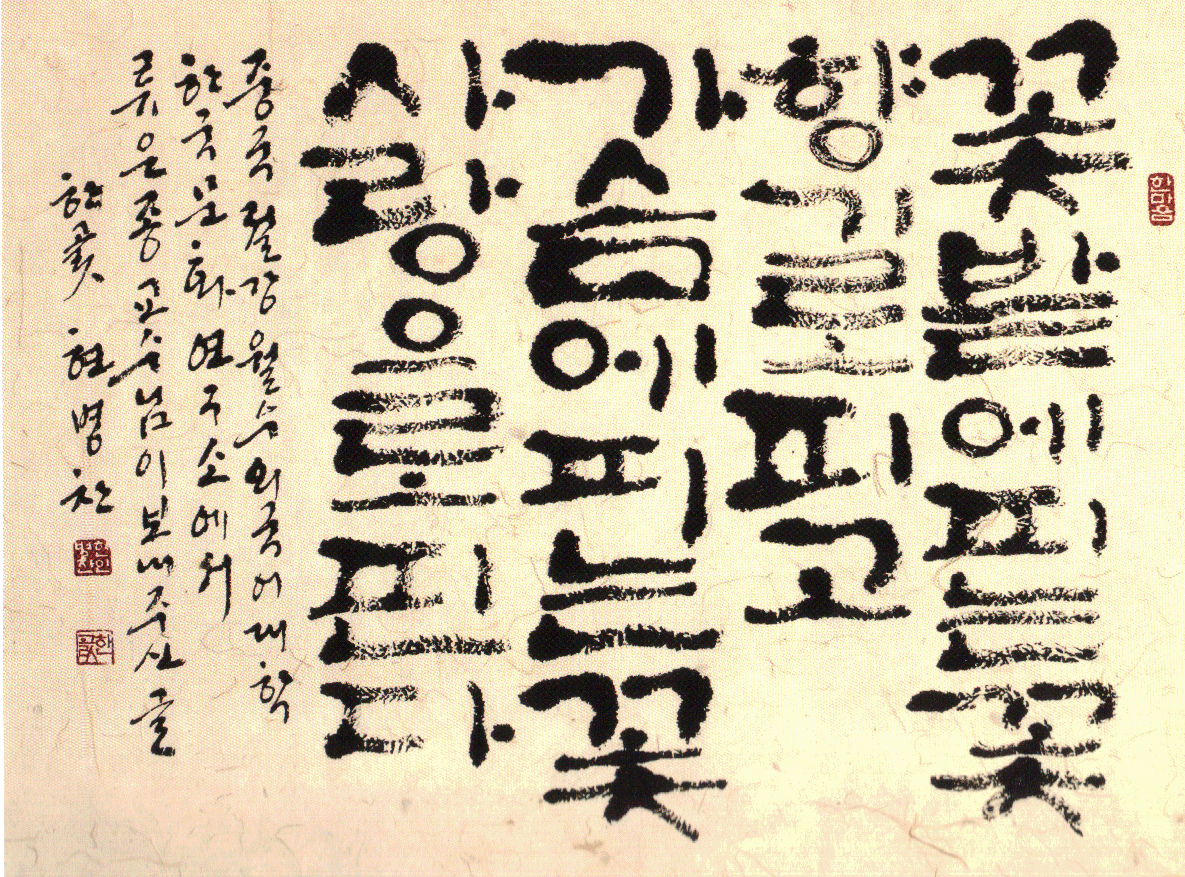 한마음
꽃밭에 피는 꽃
향기로 피고
가슴에 피는 꽃
사랑으로 핀다
중국 절강월수외국어대학
한국문화연구소에서
류은종 교수님이 보내주신 글
한곬 현병찬
한곬